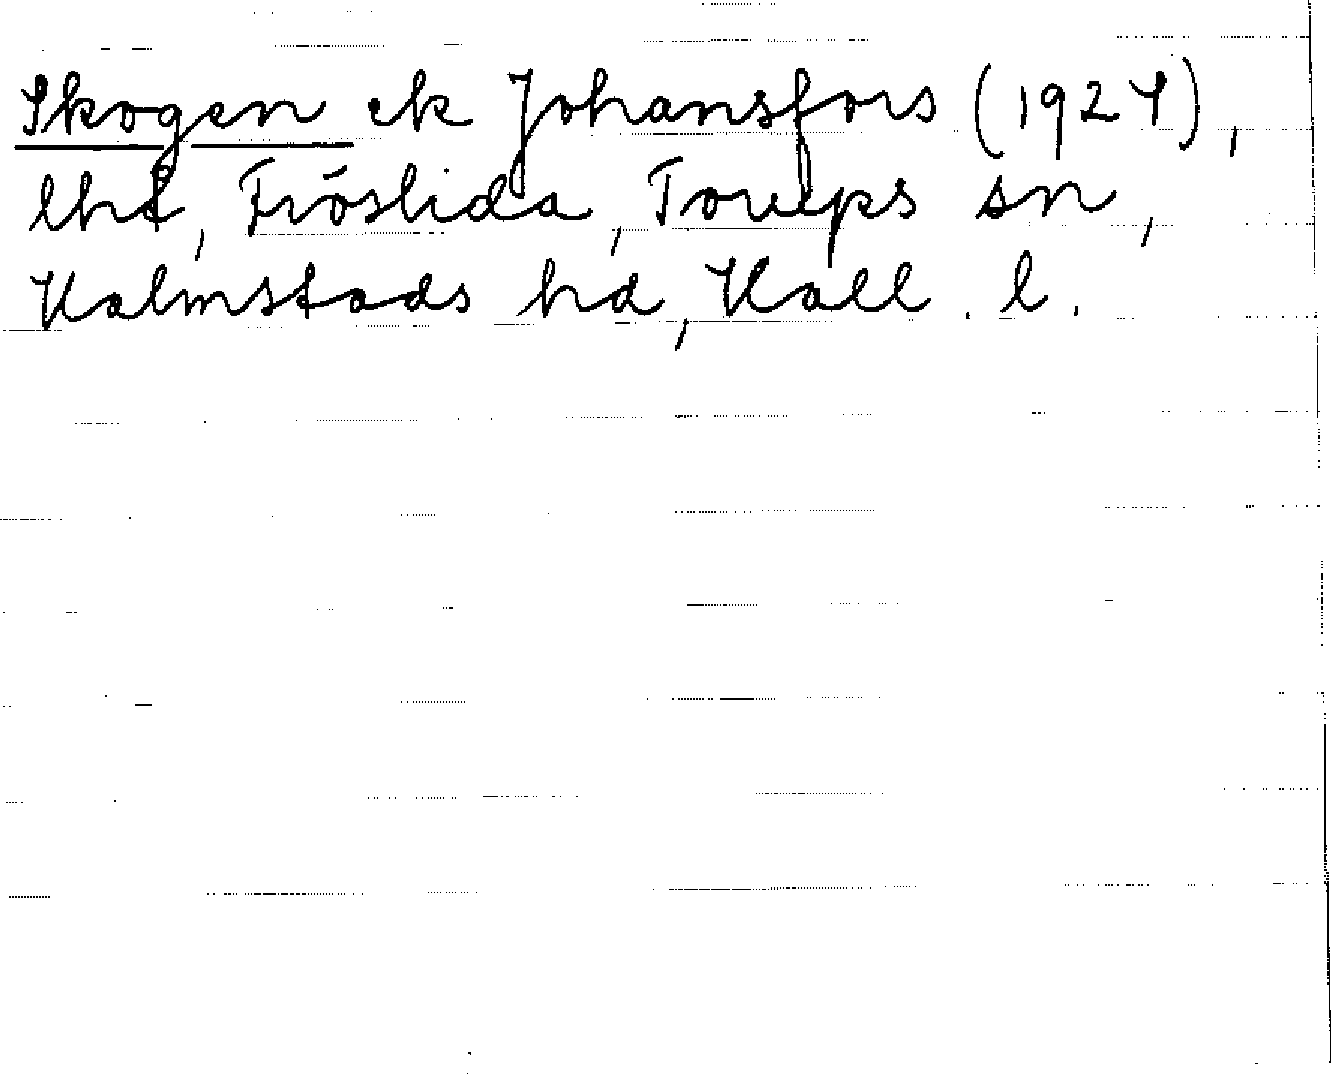 Skogen ek Johansfors (1924),
lhd, Fröslida, Torups sn,
Halmstads hd, Hall. l.